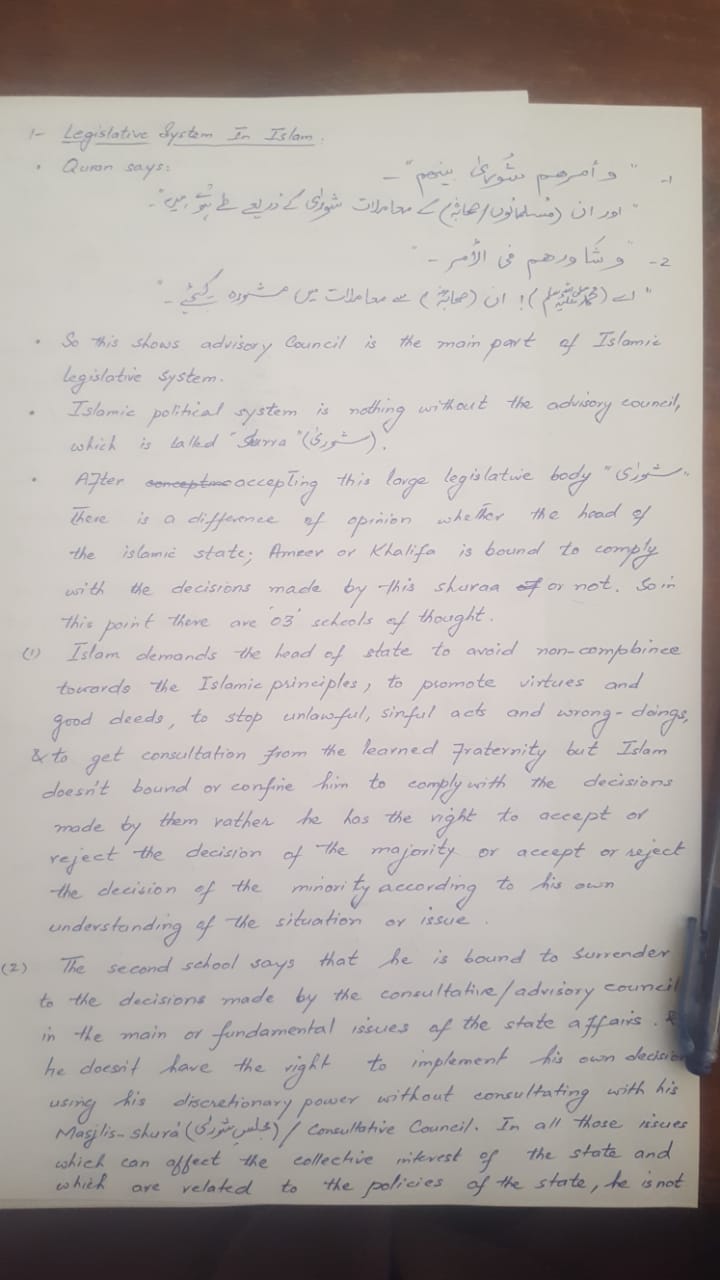 1- Legislative System In Islam.
• Quran says: 1- "وأمرهم شُورىٰ بينهم"۔
"اور ان (مسلمانوں/صحابہؓ) کے معاملات شورٰی کے ذریعے طے ہوتے ہیں"۔
2- "وشاورهم فی الأمر۔"
"اے (محمد ﷺ)! ان (صحابہؓ) سے معاملات میں مشورہ کیجئے۔"
• So this shows advisory Council is the main part of Islamic
legislative system.
• Islamic political system is nothing without the advisory council,
which is called "Shurra" (شورىٰ).
• After conceptme accepting this large legislative body "شورٰی"
There is a difference of opinion whether the head of
the islamic state; Ameer or Khalifa is bound to comply
with the decisions made by this shuraa of or not. So in
this point there are '03' schools of thought.
(1) Islam demands the head of state to avoid non-complaince
towards the Islamic principles, to promote virtues and
good deeds, to stop unlawful, sinful acts and wrong-doings,
& to get consultation from the learned fraternity but Islam
doesn't bound or confine him to comply with the decisions
made by them rather he has the right to accept or
reject the decision of the majority or accept or reject
the decision of the minority according to his own
understanding of the situation or issue.
(2) The second school says that he is bound to surrender
to the decisions made by the consultative/advisory council
in the main or fundamental issues of the state affairs. &
he doesn't have the right to implement his own decision
using his discretionary power without consultating with his
Masjlis-shura (مجلسِ شورٰی) / Consultative Council. In all those issues
which can affect the collective interest of the state and
which are related to the policies of the state, he is not